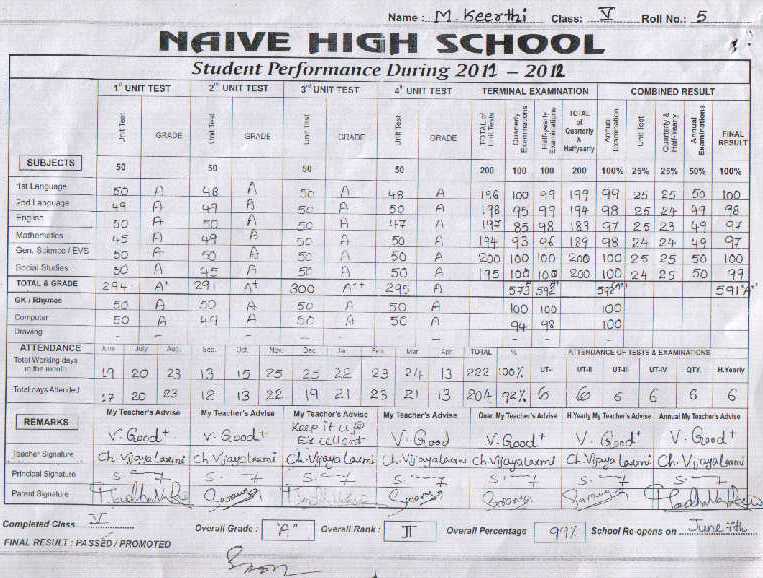 Name : M. Keerthi Class: V Roll No.: 5
NAIVE HIGH SCHOOL
Student Performance During 2011 – 2012
1st UNIT TEST 2nd UNIT TEST 3rd UNIT TEST 4th UNIT TEST TERMINAL EXAMINATION COMBINED RESULT
SUBJECTS Unit Test GRADE Unit Test GRADE Unit Test GRADE Unit Test GRADE TOTAL of Unit Tests Quarterly Examinations Half-yearly Examinations TOTAL of Quarterly & Halfyearly Annual Examination Unit Test Quarterly & Half-Yearly Annual Examinations FINAL RESULT
50 50 50 50 200 100 100 200 100% 25% 25% 50% 100%
1st Language 50 A 48 A 50 A 48 A 196 100 99 199 99 25 25 50 100
2nd Language 49 A 49 A 50 A 50 A 198 95 99 194 98 25 24 49 98
English 50 A 50 A 50 A 47 A 197 85 98 183 97 25 23 49 97
Mathematics 45 A 49 A 50 A 50 A 194 93 96 189 98 24 24 49 97
Gen. Science / EVS 50 A 50 A 50 A 50 A 200 100 100 200 100 25 25 50 100
Social Studies 50 A 45 A 50 A 50 A 195 100 100 200 100 24 25 50 99
TOTAL & GRADE 294 A+ 291 A+ 300 A++ 295 A 573 592 592 591 A+
GK / Rhymes 50 A 50 A 50 A 50 A 100 100 100
Computer 50 A 49 A 50 A 50 A 94 98 100
Drawing – – – – – – – – – – –
ATTENDANCE June July Aug. Sep. Oct. Nov. Dec. Jan. Feb. Mar. Apr. TOTAL % ATTENDANCE OF TESTS & EXAMINATIONS
Total Working days in the month 19 20 23 13 15 25 25 22 23 24 13 222 100% UT-I UT-II UT-II UT-IV QTY. H.Yearly
Total days Attended 17 20 23 12 13 22 19 21 23 21 13 204 92% 6 6 6 6 6 6
REMARKS My Teacher's Advise My Teacher's Advise My Teacher's Advise My Teacher's Advise Quar. My Teacher's Advise H.Yearly My Teacher's Advise Annual My Teacher's Advise
V. Good+ V. Good+ Keep it up Excellent V. Good V. Good+ V. Good+ V. Good+
Teacher Signature Ch. Vijaya Laxmi Ch. Vijaya Laxmi Ch. Vijaya Laxmi Ch. Vijaya Laxmi Ch. Vijaya Laxmi Ch. Vijaya Laxmi Ch. Vijaya Laxmi
Principal Signature
Parent Signature
Completed Class V Overall Grade : "A" Overall Rank : II Overall Percentage 99% School Re-opens on June 7th
FINAL RESULT : PASSED / PROMOTED